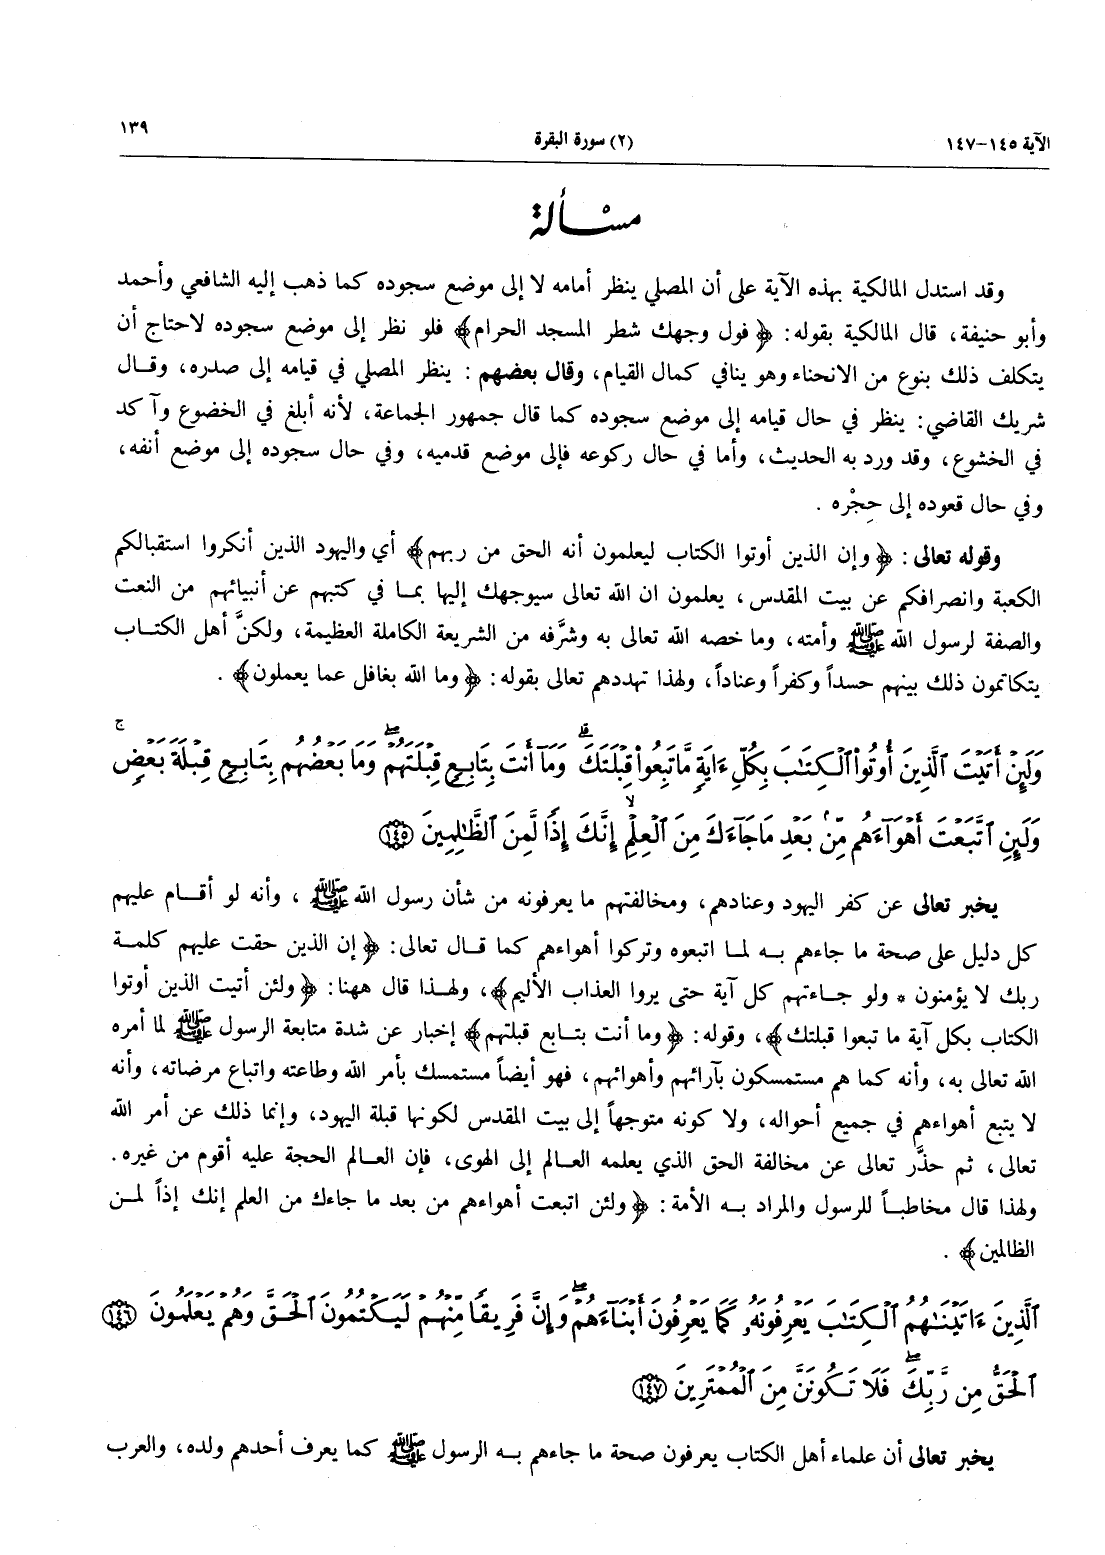 الآية ١٤٥-١٤٧ (٢) سورة البقرة ١٣٩
مسألة
وقد استدل المالكية بهذه الآية على أن المصلي ينظر أمامه لا إلى موضع سجوده كما ذهب إليه الشافعي وأحمد
وأبو حنيفة، قال المالكية بقوله: ﴿فول وجهك شطر المسجد الحرام﴾ فلو نظر إلى موضع سجوده لاحتاج أن
يتكلف ذلك بنوع من الانحناء وهو ينافي كمال القيام، وقال بعضهم: ينظر المصلي في قيامه إلى صدره، وقال
شريك القاضي: ينظر في حال قيامه إلى موضع سجوده كما قال جمهور الجماعة، لأنه أبلغ في الخضوع وآكد
في الخشوع، وقد ورد به الحديث، وأما في حال ركوعه فإلى موضع قدميه، وفي حال سجوده إلى موضع أنفه،
وفي حال قعوده إلى حِجْره .
وقوله تعالى: ﴿وإن الذين أوتوا الكتاب ليعلمون أنه الحق من ربهم﴾ أي واليهود الذين أنكروا استقبالكم
الكعبة وانصرافكم عن بيت المقدس، يعلمون ان الله تعالى سيوجهك إليها بما في كتبهم عن أنبيائهم من النعت
والصفة لرسول الله ﷺ وأمته، وما خصه الله تعالى به وشرَّفه من الشريعة الكاملة العظيمة، ولكنَّ أهل الكتاب
يتكاتمون ذلك بينهم حسداً وكفراً وعناداً، ولهذا تهددهم تعالى بقوله: ﴿وما الله بغافل عما يعملون﴾ .
وَلَئِنْ أَتَيْتَ ٱلَّذِينَ أُوتُوا۟ ٱلْكِتَـٰبَ بِكُلِّ ءَايَةٍ مَّا تَبِعُوا۟ قِبْلَتَكَ ۚ وَمَآ أَنتَ بِتَابِعٍ قِبْلَتَهُمْ ۚ وَمَا بَعْضُهُم بِتَابِعٍ قِبْلَةَ بَعْضٍ ۚ
وَلَئِنِ ٱتَّبَعْتَ أَهْوَآءَهُم مِّنۢ بَعْدِ مَا جَآءَكَ مِنَ ٱلْعِلْمِ ۙ إِنَّكَ إِذًا لَّمِنَ ٱلظَّـٰلِمِينَ ١٤٥
يخبر تعالى عن كفر اليهود وعنادهم، ومخالفتهم ما يعرفونه من شأن رسول الله ﷺ، وأنه لو أقام عليهم
كل دليل على صحة ما جاءهم به لما اتبعوه وتركوا أهواءهم كما قال تعالى: ﴿إن الذين حقت عليهم كلمة
ربك لا يؤمنون * ولو جاءتهم كل آية حتى يروا العذاب الأليم﴾، ولهذا قال ههنا: ﴿ولئن أتيت الذين أوتوا
الكتاب بكل آية ما تبعوا قبلتك﴾، وقوله: ﴿وما أنت بتابع قبلتهم﴾ إخبار عن شدة متابعة الرسول ﷺ لما أمره
الله تعالى به، وأنه كما هم مستمسكون بآرائهم وأهوائهم، فهو أيضاً مستمسك بأمر الله وطاعته واتباع مرضاته، وأنه
لا يتبع أهواءهم في جميع أحواله، ولا كونه متوجهاً إلى بيت المقدس لكونها قبلة اليهود، وإنما ذلك عن أمر الله
تعالى، ثم حذَّر تعالى عن مخالفة الحق الذي يعلمه العالم إلى الهوى، فإن العالم الحجة عليه أقوم من غيره.
ولهذا قال مخاطباً للرسول والمراد به الأمة: ﴿ولئن اتبعت أهواءهم من بعد ما جاءك من العلم إنك إذاً لمن
الظالمين﴾ .
ٱلَّذِينَ ءَاتَيْنَـٰهُمُ ٱلْكِتَـٰبَ يَعْرِفُونَهُۥ كَمَا يَعْرِفُونَ أَبْنَآءَهُمْ ۖ وَإِنَّ فَرِيقًا مِّنْهُمْ لَيَكْتُمُونَ ٱلْحَقَّ وَهُمْ يَعْلَمُونَ ١٤٦
ٱلْحَقُّ مِن رَّبِّكَ ۖ فَلَا تَكُونَنَّ مِنَ ٱلْمُمْتَرِينَ ١٤٧
يخبر تعالى أن علماء أهل الكتاب يعرفون صحة ما جاءهم به الرسول ﷺ كما يعرف أحدهم ولده، والعرب